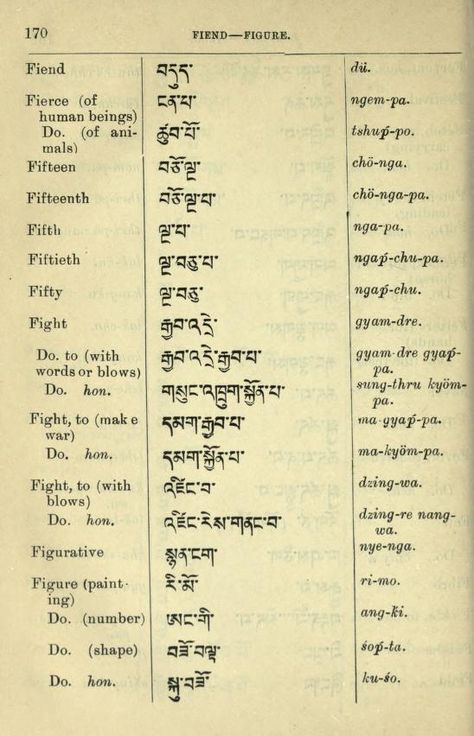 170 FIEND—FIGURE.
Fiend བདུད་ dü.
Fierce (of ངན་པ་ ngem-pa.
human beings)
Do. (of ani- ཚུབ་པོ་ tshup̓-po.
mals)
Fifteen བཅོ་ལྔ་ chö-nga.
Fifteenth བཅོ་ལྔ་པ་ chö-nga-pa.
Fifth ལྔ་པ་ nga-pa.
Fiftieth ལྔ་བཅུ་པ་ ngap̓-chu-pa.
Fifty ལྔ་བཅུ་ ngap̓-chu.
Fight རྒྱབ་འདྲེ་ gyam-dre.
Do. to (with རྒྱབ་འདྲེ་རྒྱབ་པ་ gyam-dre gyap̓-
words or blows) pa.
Do. hon. གསུང་འཁྲུག་སྐྱོན་པ་ sung-thru kyöm-
pa.
Fight, to (make དམག་རྒྱབ་པ་ ma-gyap̓-pa.
war)
Do. hon. དམག་སྐྱོན་པ་ ma-kyöm-pa.
Fight, to (with འཛིང་བ་ dzing-wa.
blows)
Do. hon. འཛིང་རེས་གནང་བ་ dzing-re nang-
wa.
Figurative སྙན་ངག་ nye-nga.
Figure (paint- རི་མོ་ ri-mo.
ing)
Do. (number) ཨང་གི་ ang-k̓i.
Do. (shape) བཟོ་བལྟ་ s̓op̓-ta.
Do. hon. སྐུ་བཟོ་ ku-s̓o.